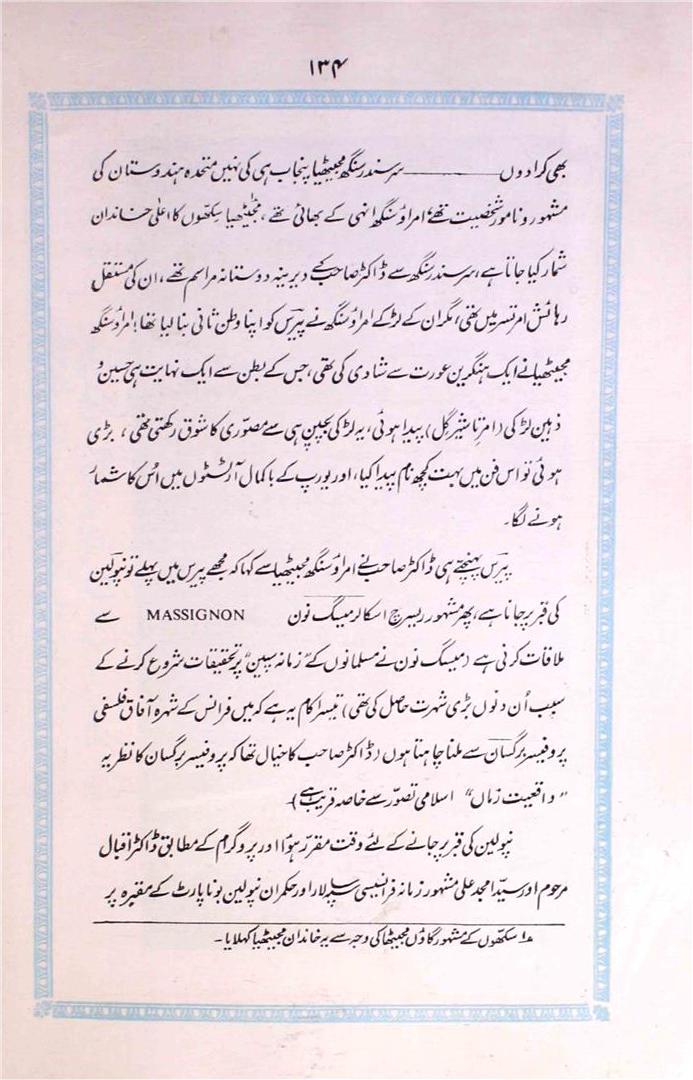 ۱۳۴
بھی کرا دوں ———— سر سندر سنگھ مجیٹھیا پنجاب ہی کی نہیں متحدہ ہندوستان کی
مشہور و نامور شخصیت تھے؛ امراؤ سنگھ انہی کے بھائی تھے، مجیٹھیا سکھوں کا اعلٰی خاندان
شمار کیا جاتا ہے، سر سندر سنگھ سے ڈاکٹر صاحب کے دیرینہ دوستانہ مراسم تھے، ان کی مستقل
رہائش امرتسر میں تھی، مگر ان کے لڑکے امراؤ سنگھ نے پیرس کو اپنا وطن ثانی بنا لیا تھا؛ امراؤ سنگھ
مجیٹھیا نے ایک ہنگرین عورت سے شادی کی تھی، جس کے بطن سے ایک نہایت ہی حسین و
ذہین لڑکی (امرتا شیر گل) پیدا ہوئی، یہ لڑکی بچپن ہی سے مصوّری کا شوق رکھتی تھی، بڑی
ہوئی تو اس فن میں بہت کچھ نام پیدا کیا، اور یورپ کے با کمال آرٹسٹوں میں اُس کا شمار
ہونے لگا۔
پیرس پہنچتے ہی ڈاکٹر صاحب نے امراؤ سنگھ مجیٹھیا سے کہا کہ مجھے پیرس میں پہلے تو نپولین
کی قبر پر جانا ہے، پھر مشہور ریسرچ اسکالر میسگ نون MASSIGNON سے
ملاقات کرنی ہے (میسگ نون نے مسلمانوں کے "زمانہ سپین" پر تحقیقات شروع کرنے کے
سبب اُن دنوں بڑی شہرت حاصل کی تھی) تیسرا کام یہ ہے کہ میں فرانس کے شہرہ آفاق فلسفی
پروفیسر برگسان سے ملنا چاہتا ہوں (ڈاکٹر صاحب کا خیال تھا کہ پروفیسر برگسان کا نظریہ
"واقعیت زماں" اسلامی تصوّر سے خاصہ قریب ہے)۔
نپولین کی قبر پر جانے کے لئے وقت مقرر ہوُا اور پروگرام کے مطابق ڈاکٹر اقبال
مرحوم اور سیّد امجد علی مشہور زمانہ فرانسیسی سپہ سالار اور حکمران نپولین بونا پارٹ کے مقبرہ پر
۱؎ سکھوں کے مشہور گاؤں مجیٹھا کی وجہ سے یہ خاندان مجیٹھیا کہلایا۔